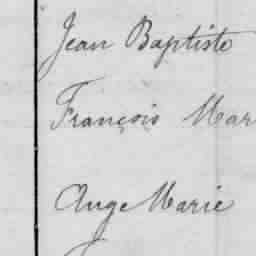 Jean Baptiste
François Mar
Ange Marie